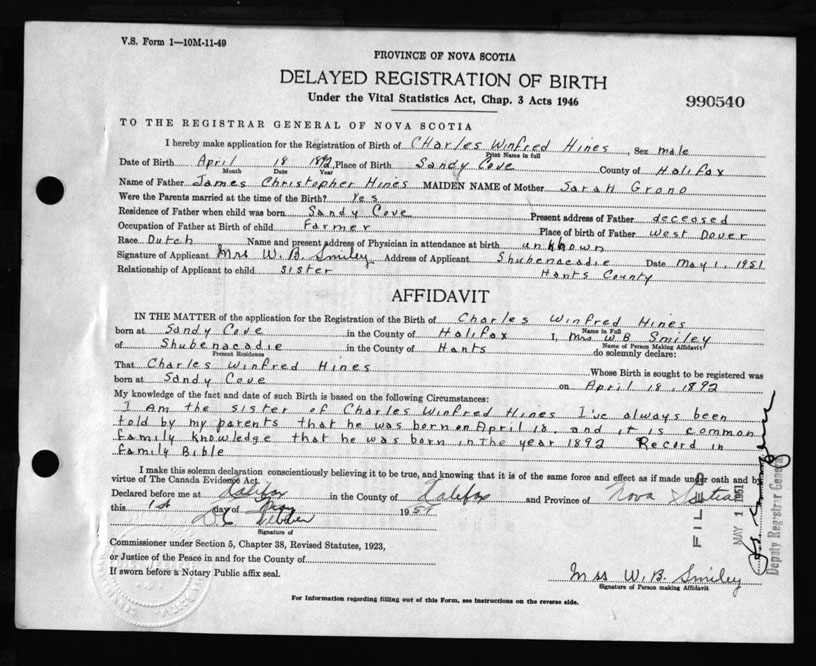 V.S. Form 1—10M-11-49
PROVINCE OF NOVA SCOTIA
DELAYED REGISTRATION OF BIRTH
Under the Vital Statistics Act, Chap. 3 Acts 1946
990540
TO THE REGISTRAR GENERAL OF NOVA SCOTIA
I hereby make application for the Registration of Birth of CHarles Winfred Hines, Sex male
Print Name in full
Date of Birth April 18 1892, Place of Birth Sandy Cove County of Halifax
Month Date Year
Name of Father James Christopher Hines MAIDEN NAME of Mother Sarah Grono
Were the Parents married at the time of the Birth? Yes
Residence of Father when child was born Sandy Cove Present address of Father deceased
Occupation of Father at Birth of child Farmer Place of birth of Father West Dover
Race Dutch Name and present address of Physician in attendance at birth unknown
Signature of Applicant Mrs W.B. Smiley Address of Applicant Shubenacadie Date May 1, 1951
Relationship of Applicant to child sister Hants County
AFFIDAVIT
IN THE MATTER of the application for the Registration of the Birth of Charles Winfred Hines
Name in Full
born at Sandy Cove in the County of Halifax I, Mrs W B Smiley
Name of Person Making Affidavit
of Shubenacadie in the County of Hants do solemnly declare:
Present Residence
That Charles Winfred Hines Whose Birth is sought to be registered was
born at Sandy Cove on April 18, 1892
My knowledge of the fact and date of such Birth is based on the following Circumstances:
I Am the sister of Charles Winfred Hines I've always been
told by my parents that he was born on April 18. and it is common
family knowledge that he was born in the year 1892 Record in
family Bible
I make this solemn declaration conscientiously believing it to be true, and knowing that it is of the same force and effect as if made under oath and by
virtue of The Canada Evidence Act.
Declared before me at Halifax in the County of Halifax and Province of Nova Scotia
this 1st day of May 1951
Signature of
Commissioner under Section 5, Chapter 38, Revised Statutes, 1923,
or Justice of the Peace in and for the County of
If sworn before a Notary Public affix seal.
Mrs W.B. Smiley
Signature of Person making Affidavit
For Information regarding filling out of this Form, see Instructions on the reverse side.
FILED
MAY 1 1951
Deputy Registrar General